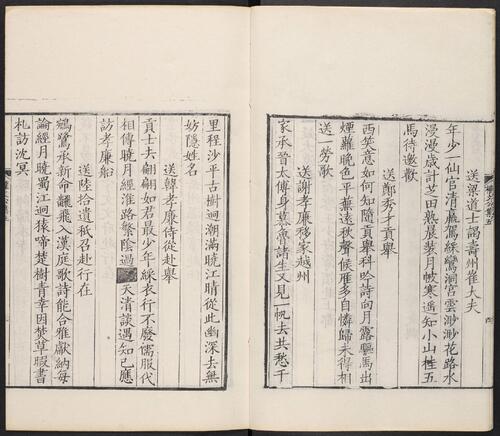 送梁道士謁壽州崔大夫
年少一仙官清羸駕綵鸞洞宮雲渺渺花路水
漫漫歲計芝田熟晨裝月帔寒遙知小山桂五
馬待邀歡
送鄭秀才貢舉
西笑意如何知隨貢舉科吟詩向月露驅馬出
煙蘿晚色平蕪遠秋聲候雁多自憐歸未得相
送一勞歌
送謝孝廉移家越州
家承晉太傅身慕魯諸生又見一帆去共愁千
里程沙平古樹迴潮滿曉江晴從此幽深去無
妨隱姓名
送韓孝廉侍從赴舉
貢士去翩翩如君最少年綵衣行不廢儒服代
相傳曉月經淮路繁陰過 天清談遇知己應
訪孝廉船
送陸拾遺祗召赴行在
鵷鷺承新命翩飛入漢庭歌詩能合雅獻納每
論經月曉蜀江迥猿啼楚樹青幸因焚草暇書
札訪沈冥